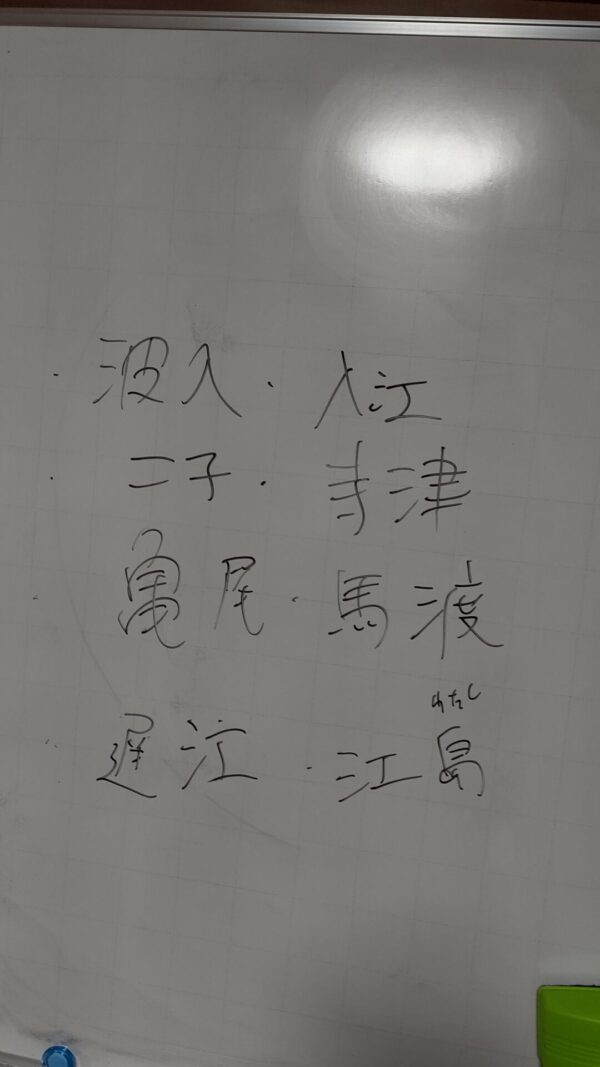 ・波入・入江
・二子・寺津
・亀尾・馬渡
わたし
・遅江・江島